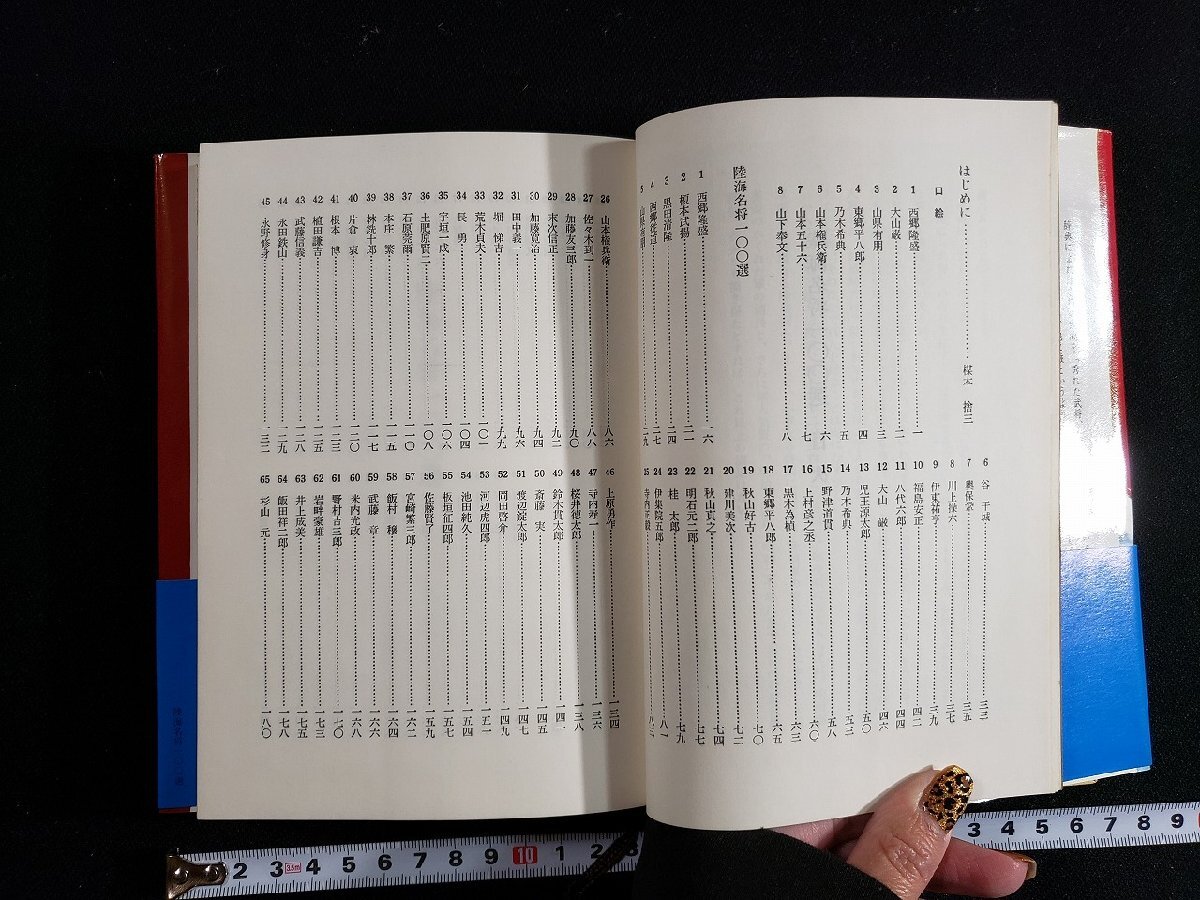 はじめに……楳本 捨三
口絵
1 西郷隆盛……一
2 大山巌……二
3 山県有朋……三
4 東郷平八郎……四
5 乃木希典……五
6 山本権兵衛……六
7 山本五十六……七
8 山下奉文……八
陸海名将一〇〇選
1 西郷隆盛……一六
2 榎本武揚……二一
3 黒田清隆……二四
4 西郷従道……二七
5 山県有朋……二九
6 谷 干城……三三
7 興保鞏……三五
8 川上操六……三七
9 伊東祐亨……三九
10 福島安正……四二
11 八代六郎……四四
12 大山 巌……四六
13 児玉源太郎……五〇
14 乃木希典……五三
15 野津道貫……五八
16 上村彦之丞……六〇
17 黒木為楨……六三
18 東郷平八郎……六五
19 秋山好古……七〇
20 建川美次……七二
21 秋山真之……七四
22 明石元二郎……七七
23 桂 太郎……七九
24 伊集院五郎……八一
25 寺内正毅
26 山本権兵衛……八六
27 佐々木到一……八八
28 加藤友三郎……九〇
29 末次信正……九二
30 加藤寛治……九四
31 田中義一……九六
32 堀 悌吉……九九
33 荒木貞夫……一〇一
34 長 勇……一〇四
35 宇垣一成……一〇六
36 土肥原賢二……一〇八
37 石原莞爾……一一〇
38 本庄 繁……一一五
39 林銑十郎……一一七
40 片倉 衷……一二〇
41 根本 博……一二三
42 植田謙吉……一二五
43 武藤信義……一二八
44 永田鉄山……一二九
45 永野修身……一三二
46 上原勇作……一三四
47 寺内寿一……一三六
48 桜井徳太郎……一三八
49 鈴木貫太郎……一四一
50 斎藤 実……一四五
51 渡辺錠太郎……一四七
52 岡田啓介……一四九
53 河辺虎四郎……一五一
54 池田純久……一五四
55 板垣征四郎……一五七
56 佐藤賢了……一五九
57 宮崎繁三郎……一六二
58 飯村 穣……一六四
59 武藤 章……一六六
60 米内光政……一六八
61 野村吉三郎……一七〇
62 岩畔豪雄……一七三
63 井上成美……一七五
64 飯田祥二郎……一七八
65 杉山 元……一八〇
陸海名将一〇〇選
2 3 3.5m 4 5 6 7 8 9 10 1 2 3
3 4 5 6 7 8 9